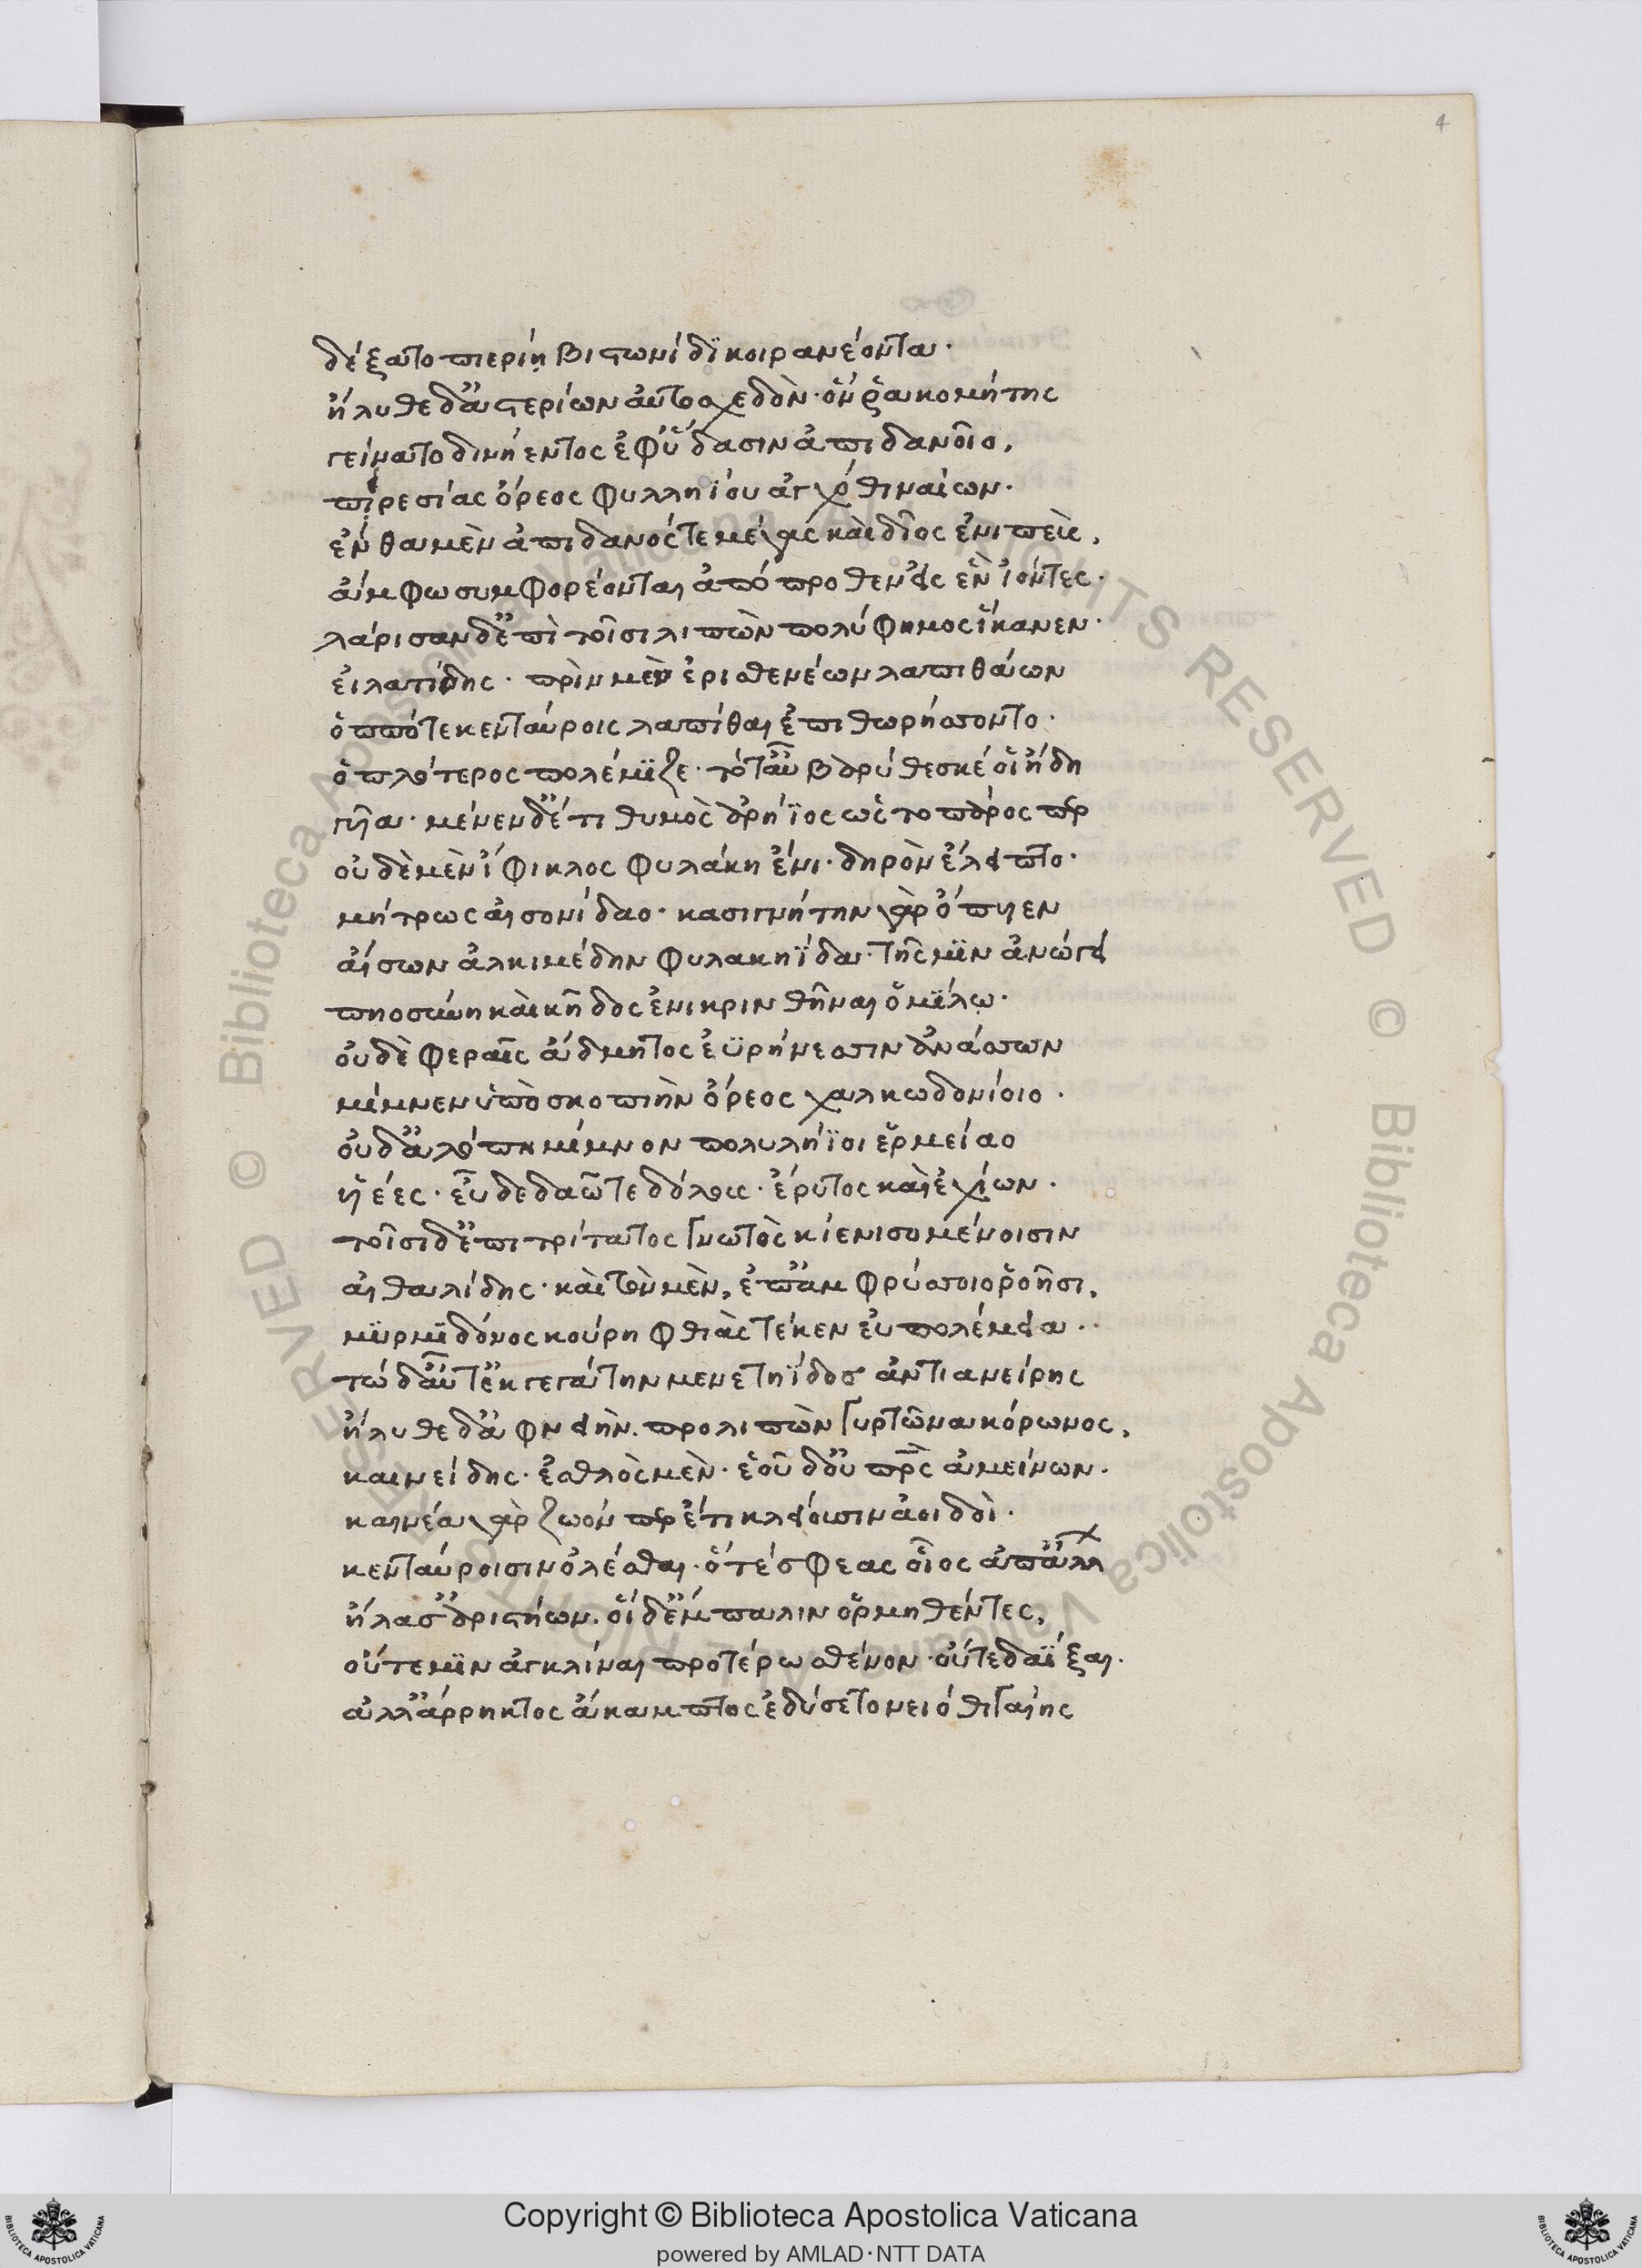 4
δέξατο πιερίη βιστωνίδι κοιρανέοντα·
ἤλυθε δ᾽ ἀστερίων αὐτοσχεδὸν· ὅν ῥα κομήτης
γείνατο δινήεντος ἐφ᾽ ὕδασιν ἀπιδανοῖο,
πειρεσίας ὄρεος φυλληΐου ἀγχόθι ναίων·
ἔνθα μὲν ἀπιδανός τε μέγας καὶ δῖος ἐνιπεὺς,
ἄμφω συμφορέονται ἀπόπροθεν εἰς ἓν ἰόντες·
λάρισαν δ᾽ ἐπὶ τοῖσι λιπὼν πολύφημος ἵκανεν·
εἰλατίδης· πρὶν μὲν ἐρισθενέων λαπιθάων
ὁππότε κενταύροις λαπίθαι ἐπιθωρήσσοντο·
ὁπλότερος πολέμιζε· τότ᾽ αὖ βαρύθεσκέ οἱ ἤδη
γυῖα· μένεν δ᾽ ἔτι θυμὸς ἀρήϊος ὡς τοπάρος περ
οὐδὲ μὲν ἴφικλος φυλάκη ἔνι· δηρὸν ἔλειπτο·
μήτρως αἰσονίδαο· κασιγνήτην γὰρ ὄπυιεν
αἴσων ἀλκιμέδην φυλακηΐδα· τῆς μιν ἀνώγει
πηοσύνη καὶ κῆδος ἐνικρινθῆναι ὁμίλῳ·
οὐδὲ φεραῖς ἄδμητος ἐϋρήνεσσιν ἀνάσσων
μίμνεν ὑπὸ σκοπιὴν ὄρεος χαλκωδονίοιο·
οὐδ᾽ ἀλόπη μίμνον πολυλήϊοι ἑρμείαο
υἱέες· εὖ δεδαῶτε δόλους· ἔρυτος καὶ ἐχίων·
τοῖσι δ᾽ ἐπι τρίτατος γνωτὸς κίε νισομένοισιν
αἰθαλίδης· καὶ τὸν μὲν, ἐπ᾽ ἀμφρύσσιο ῥοῆσι,
μυρμιδόνος κούρη φθιὰς τέκεν εὐπολέμεια··
τώ δ᾽ αὖτ᾽ ἐκγεγάτην μενετηΐδος ἀντιανείρης
ἤλυθε δ᾽ ἀφνειὴν προλιπὼν γυρτῶνα κόρωνος,
καινείδης· ἐσθλὸς μὲν· ἑοῦ δ᾽ οὐ πατρὸς ἀμείνων·
καινέα γὰρ ζωόν περ ἔτι κλείουσιν ἀοιδοὶ·
κενταύροισιν ὀλέσθαι· ὅτέ σφεας οἶος ἀπ᾽ ἄλλ
ἤλασ᾽ ἀριστήων· οἱ δ᾽ ἔμπαλιν ὁρμηθέντες,
οὔτε μιν ἀγκλίναι προτέρω σθένον· οὔτε δαΐξαι·
ἀλλ᾽ ἄρρηκτος ἄκαμπτος ἐδύσετο νειόθι γαίης
Copyright © Biblioteca Apostolica Vaticana
powered by AMLAD·NTT DATA